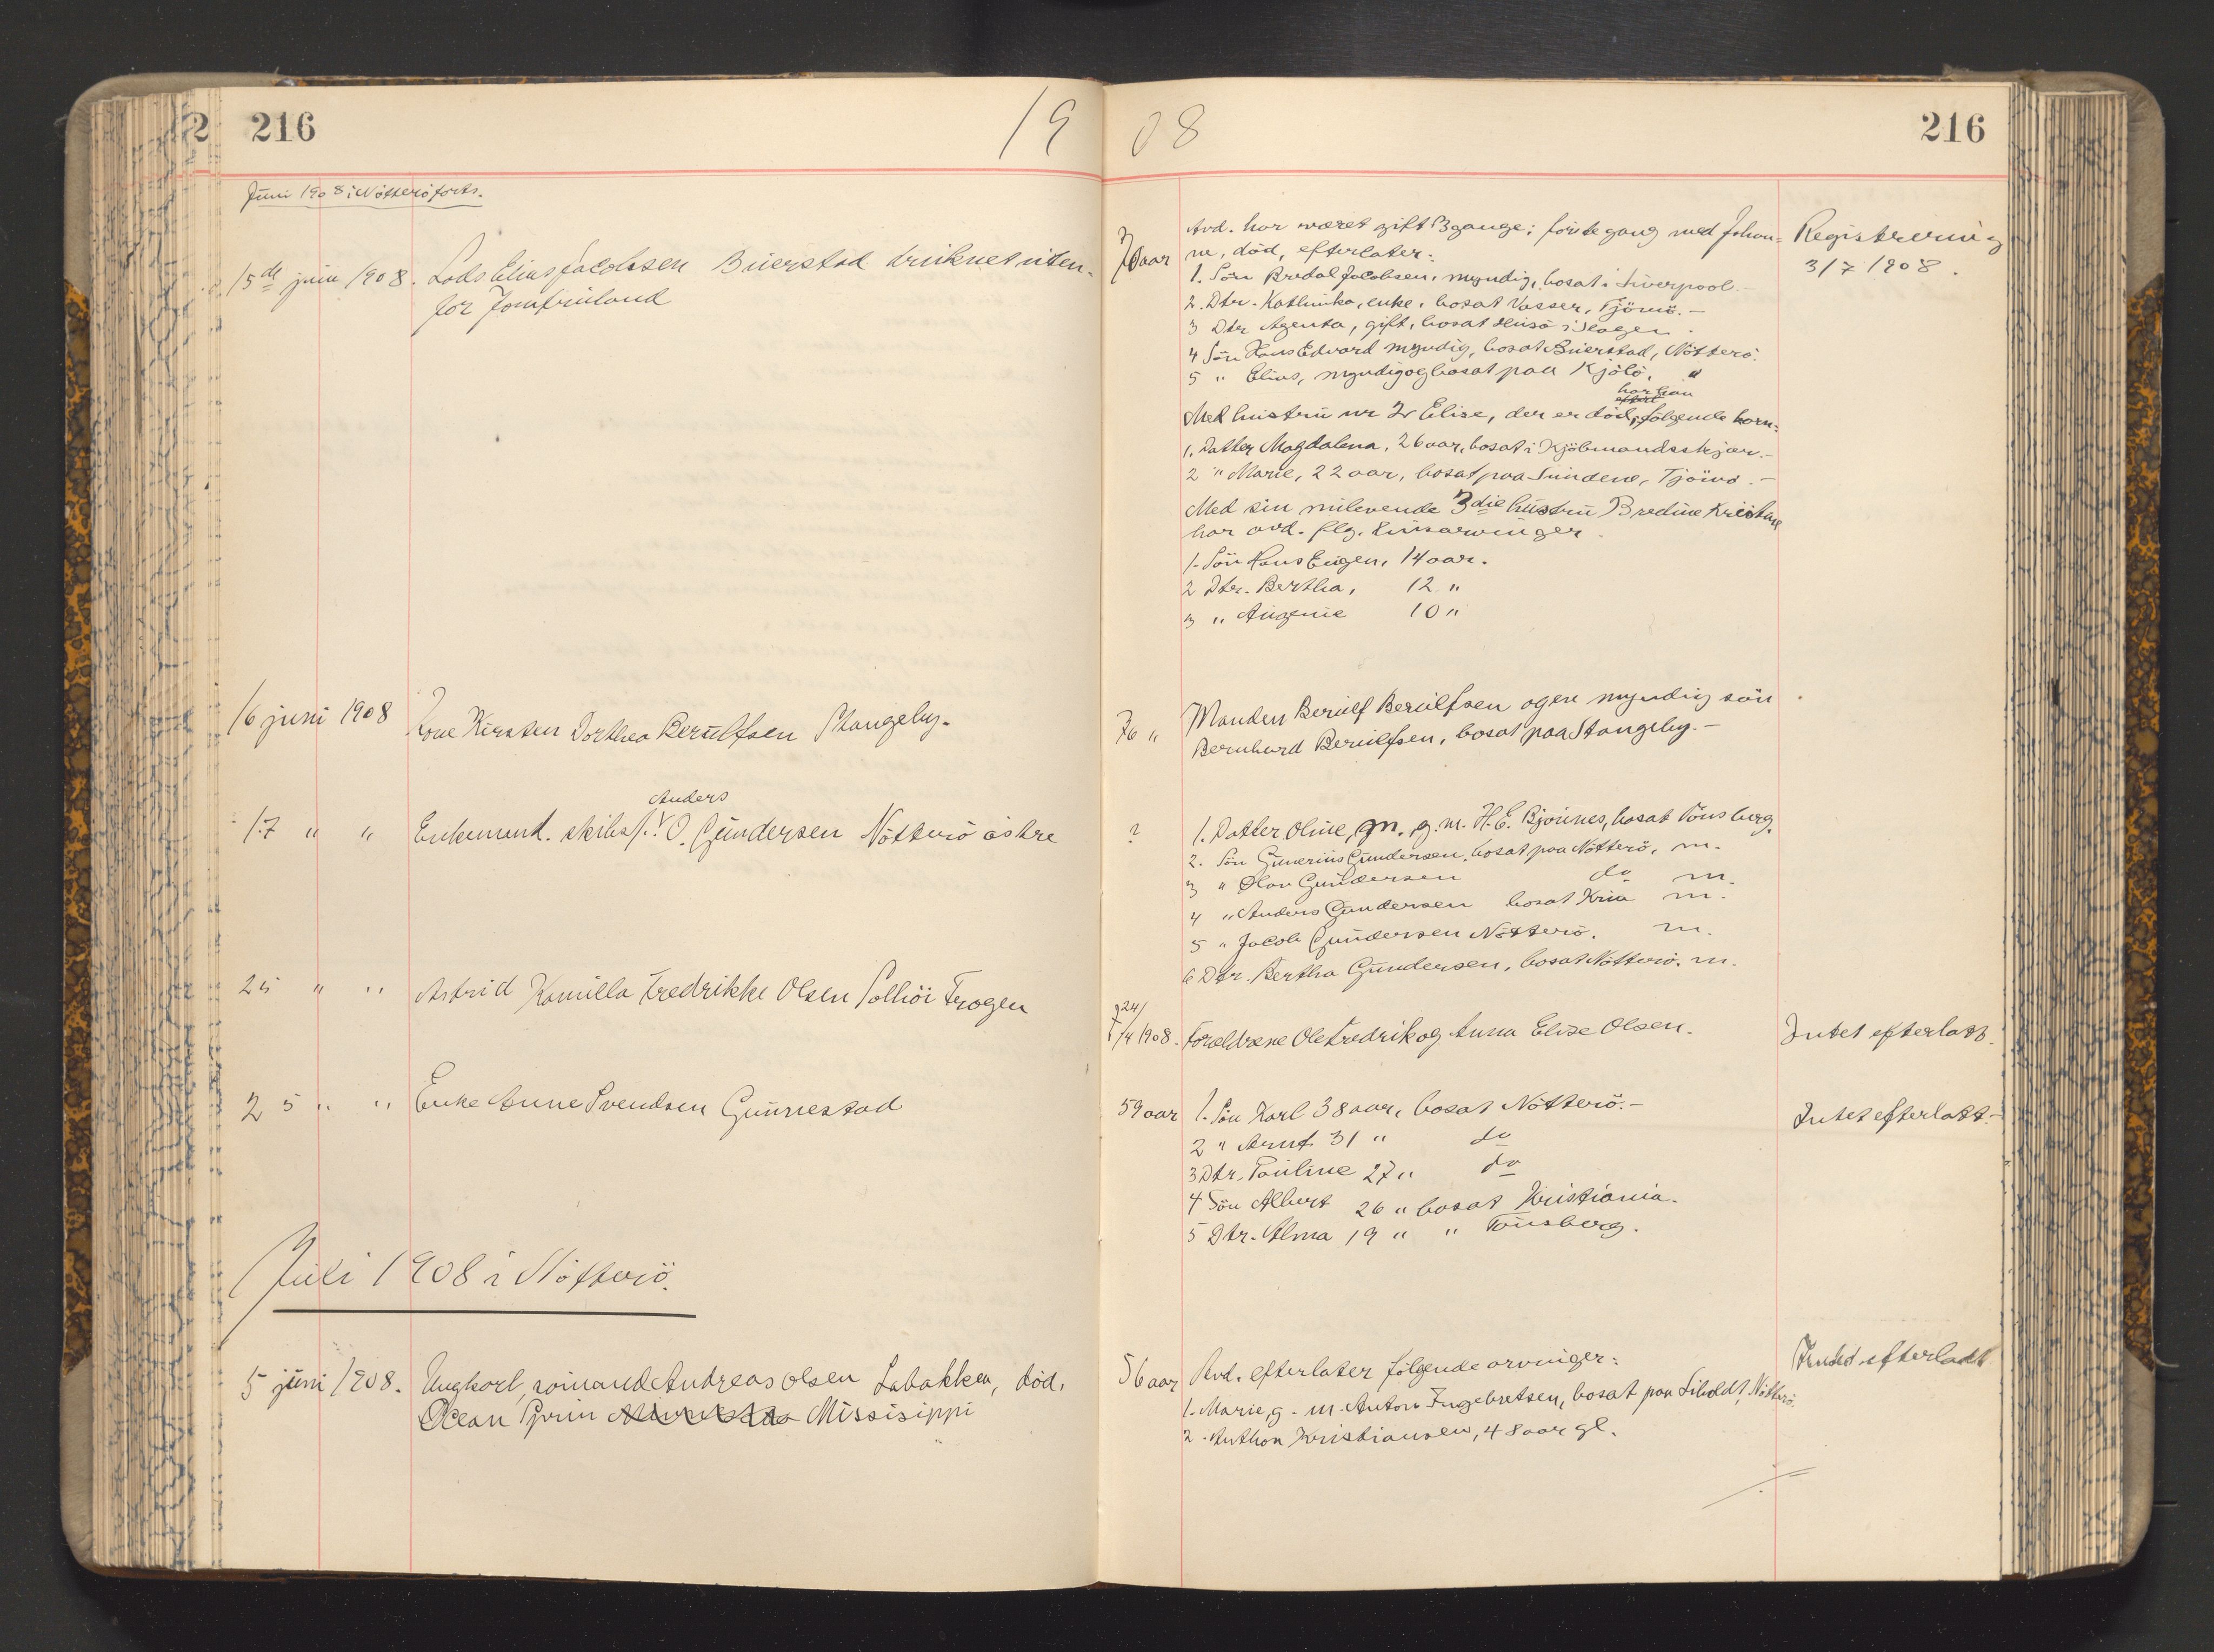 216
19
08
216
Juni 1908 i Nötterö forts.
15de juni 1908. Lods Elias Jacobsen Buerstad druknet uten-
for Jomfruland
70 aar
Avd. har været gift 3 gange: förste gang med Johan-
ne, död, efterlater:
1. Sön Bredal Jacobsen, myndig, bosat i Liverpool.-
2. Dtr. Kathinka, enke, bosat Vasser, Tjömö.-
3 Dtr Agenta, gift, bosat Husö i Slagen.
4 Sön Hans Edvard myndig, bosat Buerstad, Nötterö.
5 " Elias, myndig og bosat paa Kjölö. "
har han
Med hustru nr 2 Elise, der er död, følgende barn:
1. Datter Magdalena, 26 aar, bosat i Kjöbmandsskjær.-
2 " Marie, 22 aar, bosat paa Sundene, Tjömö.-
Med sin nulevende 3die hustru Bredine Kristine
har avd. flg. livsarvinger
1. Sön Hans Eugen, 14 aar.
2 Dtr. Bertha, 12 "
3 " Augenie 10 "
Registrering
3/7 1908.
16 juni 1908 Kone Kirsten Dorthea Berulfsen Stangeby.
76 "
Manden Berulf Berulfsen og en myndig sön
Bernhard Berulfsen, bosat paa Stangeby.-
Anders
17 " " Enkemand. skibsf. O. Gundersen Nötterö östre
?
1. Datter Oline, m. g. m. H. E. Bjönnes, bosat Tönsberg.
2. Sön Gunerius Gundersen, bosat paa Nötterö, m.
3 " Olav Gundersen do m.
4 " Anders Gundersen bosat Kria m.
5 " Jacob Gundersen Nötterö. m.
6 Dtr. Bertha Gundersen, bosat Nötterö. m.
25 " " Astrid Kamilla Fredrikke Olsen Solhöi Trogen
24/
/4 1908.
Forældrene Ole Fredrik og Anna Elise Olsen.
Intet efterlatt.
25 " " Enke Anne Svendsen Gunnestad
59 aar
1. Sön Karl 38 aar, bosat Nötterö.-
2 " Arnt 31 " do
3 Dtr. Pauline 27 " do
4 Sön Albert 26 " bosat Kristiania.
5 Dtr. Alma 19 " " Tönsberg.
Intet efterlatt.-
Juli 1908 i Nötterö.
5 juni 1908. Ungkarl, sömand Andreas Olsen Labakken, död.
Ocean Sprin Missisippi
56 aar
Avd. efterlater følgende arvinger:
1. Marie, g. m. Anton Ingebretsen, bosat paa Liholdt, Nötterö.
2. Anthon Kristiansen, 48 aar gl.
Intet efterladt